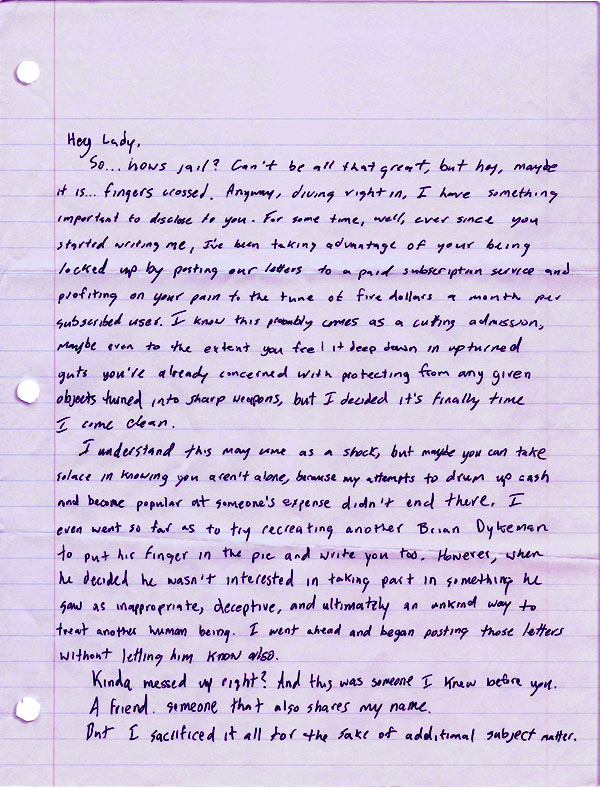 Hey Lady,
So... hows jail? Can't be all that great, but hey, maybe
it is... fingers crossed. Anyway, diving right in, I have something
important to disclose to you. For some time, well, ever since you
started writing me, I've been taking advantage of your being
locked up by posting our letters to a paid subscription service and
profiting on your pain to the tune of five dollars a month per
subscribed user. I know this probably comes as a cutting admission,
maybe even to the extent you feel it deep down in upturned
guts you're already concerned with protecting from any given
objects turned into sharp weapons, but I decided it's finally time
I come clean.
I understand this may come as a shock, but maybe you can take
solace in knowing you aren't alone, because my attempts to drum up cash
and become popular at someone's expense didn't end there. I
even went so far as to try recreating another Brian Dykeman
to put his finger in the pie and write you too. However, when
he decided he wasn't interested in taking part in something he
saw as inappropriate, deceptive, and ultimately an unkind way to
treat another human being. I went ahead and began posting those letters
without letting him know also.
Kinda messed up right? And this was someone I knew before you.
A friend. someone that also shares my name.
But I sacrificed it all for the sake of additional subject matter.